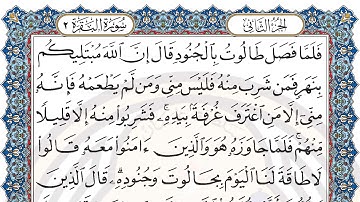 سورة البقرة ٢
الجزء الثاني
فَلَمَّا فَصَلَ طَالُوتُ بِالْجُنُودِ قَالَ إِنَّ اللَّهَ مُبْتَلِيكُم
بِنَهَرٍ فَمَن شَرِبَ مِنْهُ فَلَيْسَ مِنِّي وَمَن لَّمْ يَطْعَمْهُ فَإِنَّهُ
مِنِّي إِلَّا مَنِ اغْتَرَفَ غُرْفَةً بِيَدِهِ فَشَرِبُوا مِنْهُ إِلَّا قَلِيلًا
مِّنْهُمْ فَلَمَّا جَاوَزَهُ هُوَ وَالَّذِينَ ءَامَنُوا مَعَهُ قَالُوا
لَا طَاقَةَ لَنَا الْيَوْمَ بِجَالُوتَ وَجُنُودِهِ قَالَ الَّذِينَ